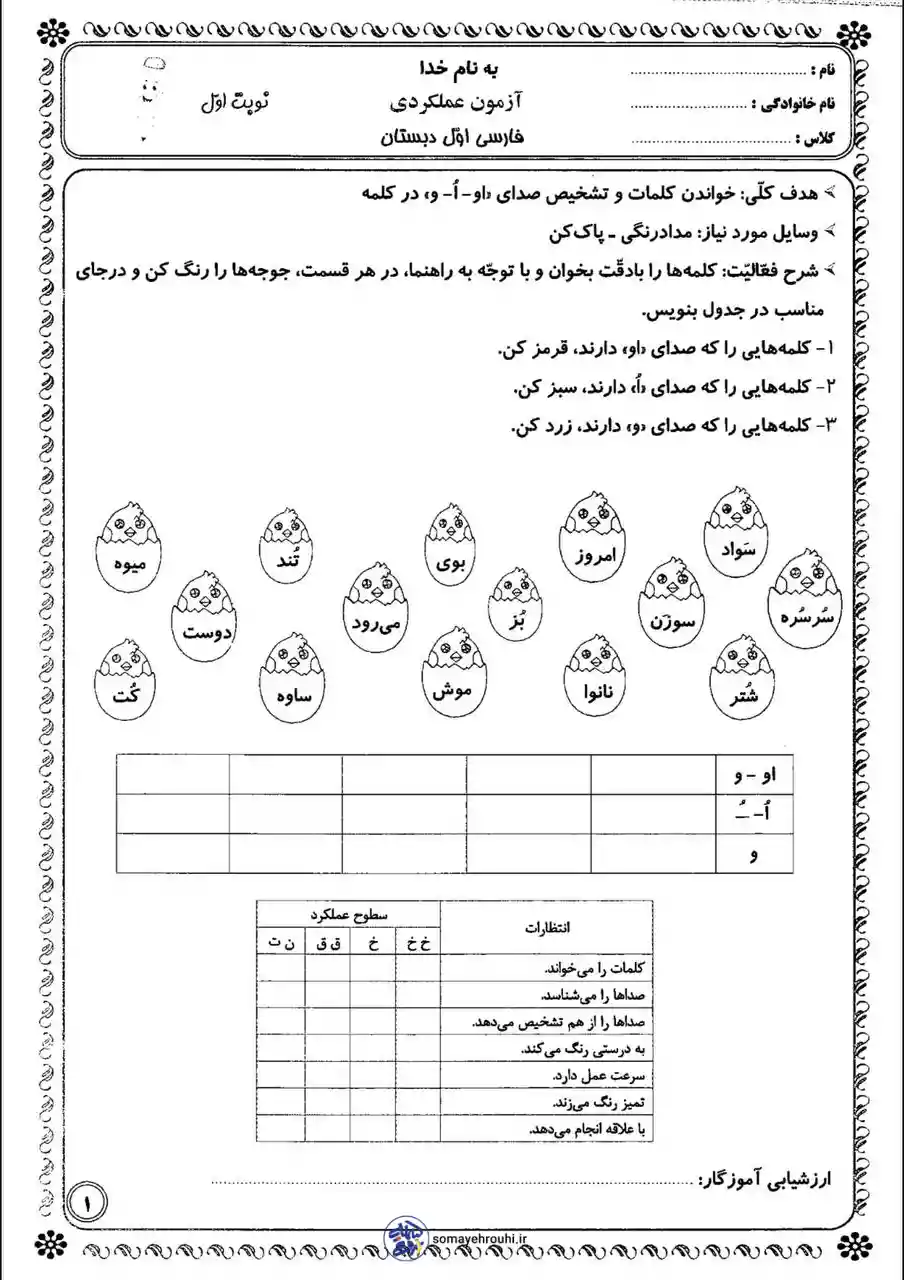 به نام خدا
آزمون عملکردی
فارسی اوّل دبستان
نوبت اوّل
نام : ..........................................
نام خانوادگی : ............................
کلاس : ......................................
هدف کلّی: خواندن کلمات و تشخیص صدای «او- اُ- و» در کلمه
وسایل مورد نیاز: مدادرنگی ـ پاک‌کن
شرح فعّالیّت: کلمه‌ها را بادقّت بخوان و با توجّه به راهنما، در هر قسمت، جوجه‌ها را رنگ کن و درجای
مناسب در جدول بنویس.
۱- کلمه‌هایی را که صدای «او» دارند، قرمز کن.
۲- کلمه‌هایی را که صدای «اُ» دارند، سبز کن.
۳- کلمه‌هایی را که صدای «و» دارند، زرد کن.
سَواد
امروز
بوی
تُند
میوه
سُرسُره
سوزَن
بُز
می‌رود
دوست
شُتر
نانوا
موش
ساوه
کُت
او - و
اُ- ـُ
و
انتظارات
سطوح عملکرد
خ خ
خ
ق ق
ن ت
کلمات را می‌خواند.
صداها را می‌شناسد.
صداها را از هم تشخیص می‌دهد.
به درستی رنگ می‌کند.
سرعت عمل دارد.
تمیز رنگ می‌زند.
با علاقه انجام می‌دهد.
ارزشیابی آموزگار: ..........................................................................................
۱
somayehrouhi.ir